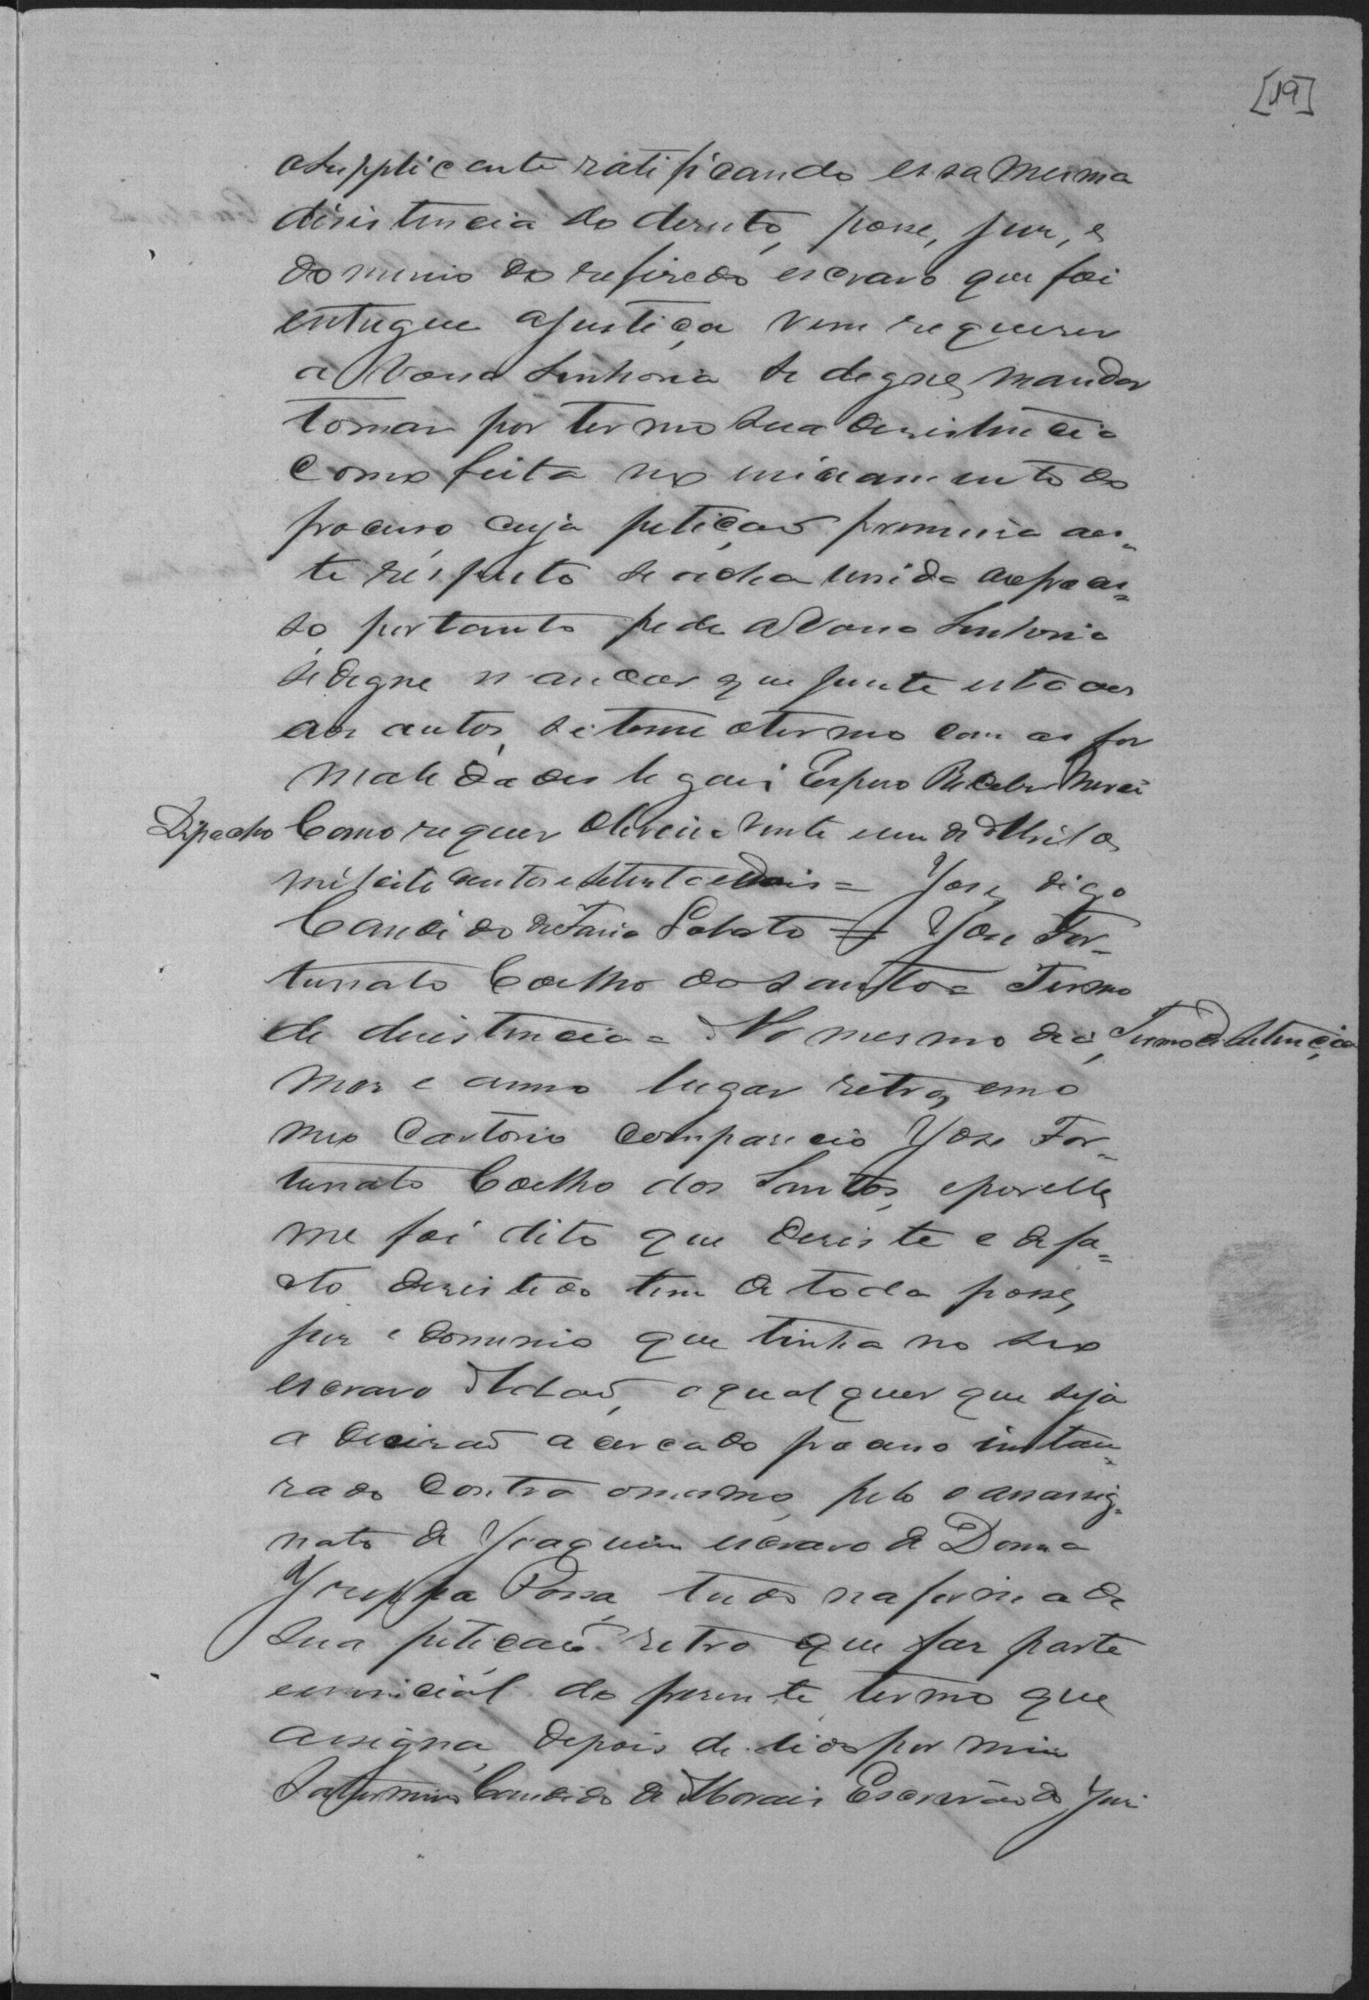 [19]
o Supplicante ratificando essa mesma
disistencia do dereito, posse, jur, e
dominio do referedo escravo que foi
entregue ajustiça vem requerer
a Vossa Senhoria se degne, mandar
tomar por termo sua desistencia
como feita no iniciamento do
procuso cuja petiçaõ premeira a es-
te respeito se acha unida ao proces=
so, portanto pede a Vossa Senhoria
se degne mandar que junte esta aos
aos autos, se tome o termo com as for
malidades legais Espero Receber Mercê
Dispacho Como requer Oliveira vinte eum de Abril de
mil oito centos e setenta e dois = José, digo
Candido de Faria Lobato = José For-
tunato Coelho dos Santos = Termo
de desistencia = No mesmo dia, Termo de desistencia
mes e anno lugar retro, em o
meo Cartorio compareceo José For-
tunato Coelho dos Santos, e por elle
me foi dito que desiste e de fa=
cto desistido tem de toda posse,
jur e dominio que tinha no seo
escravo Adaõ, e qualquer que seja
a decisaõ acerca do processo instau=
rado contra o mesmo, pelo o assassig=
nato de Joaquim escravo de Donna
Joseppa Rosa, tudo na forma de
sua peticaõ retro que faz parte
do presente termo que
assigna, depois de lido por mim
Saturnino Candido de Morais Escrivão do Juri